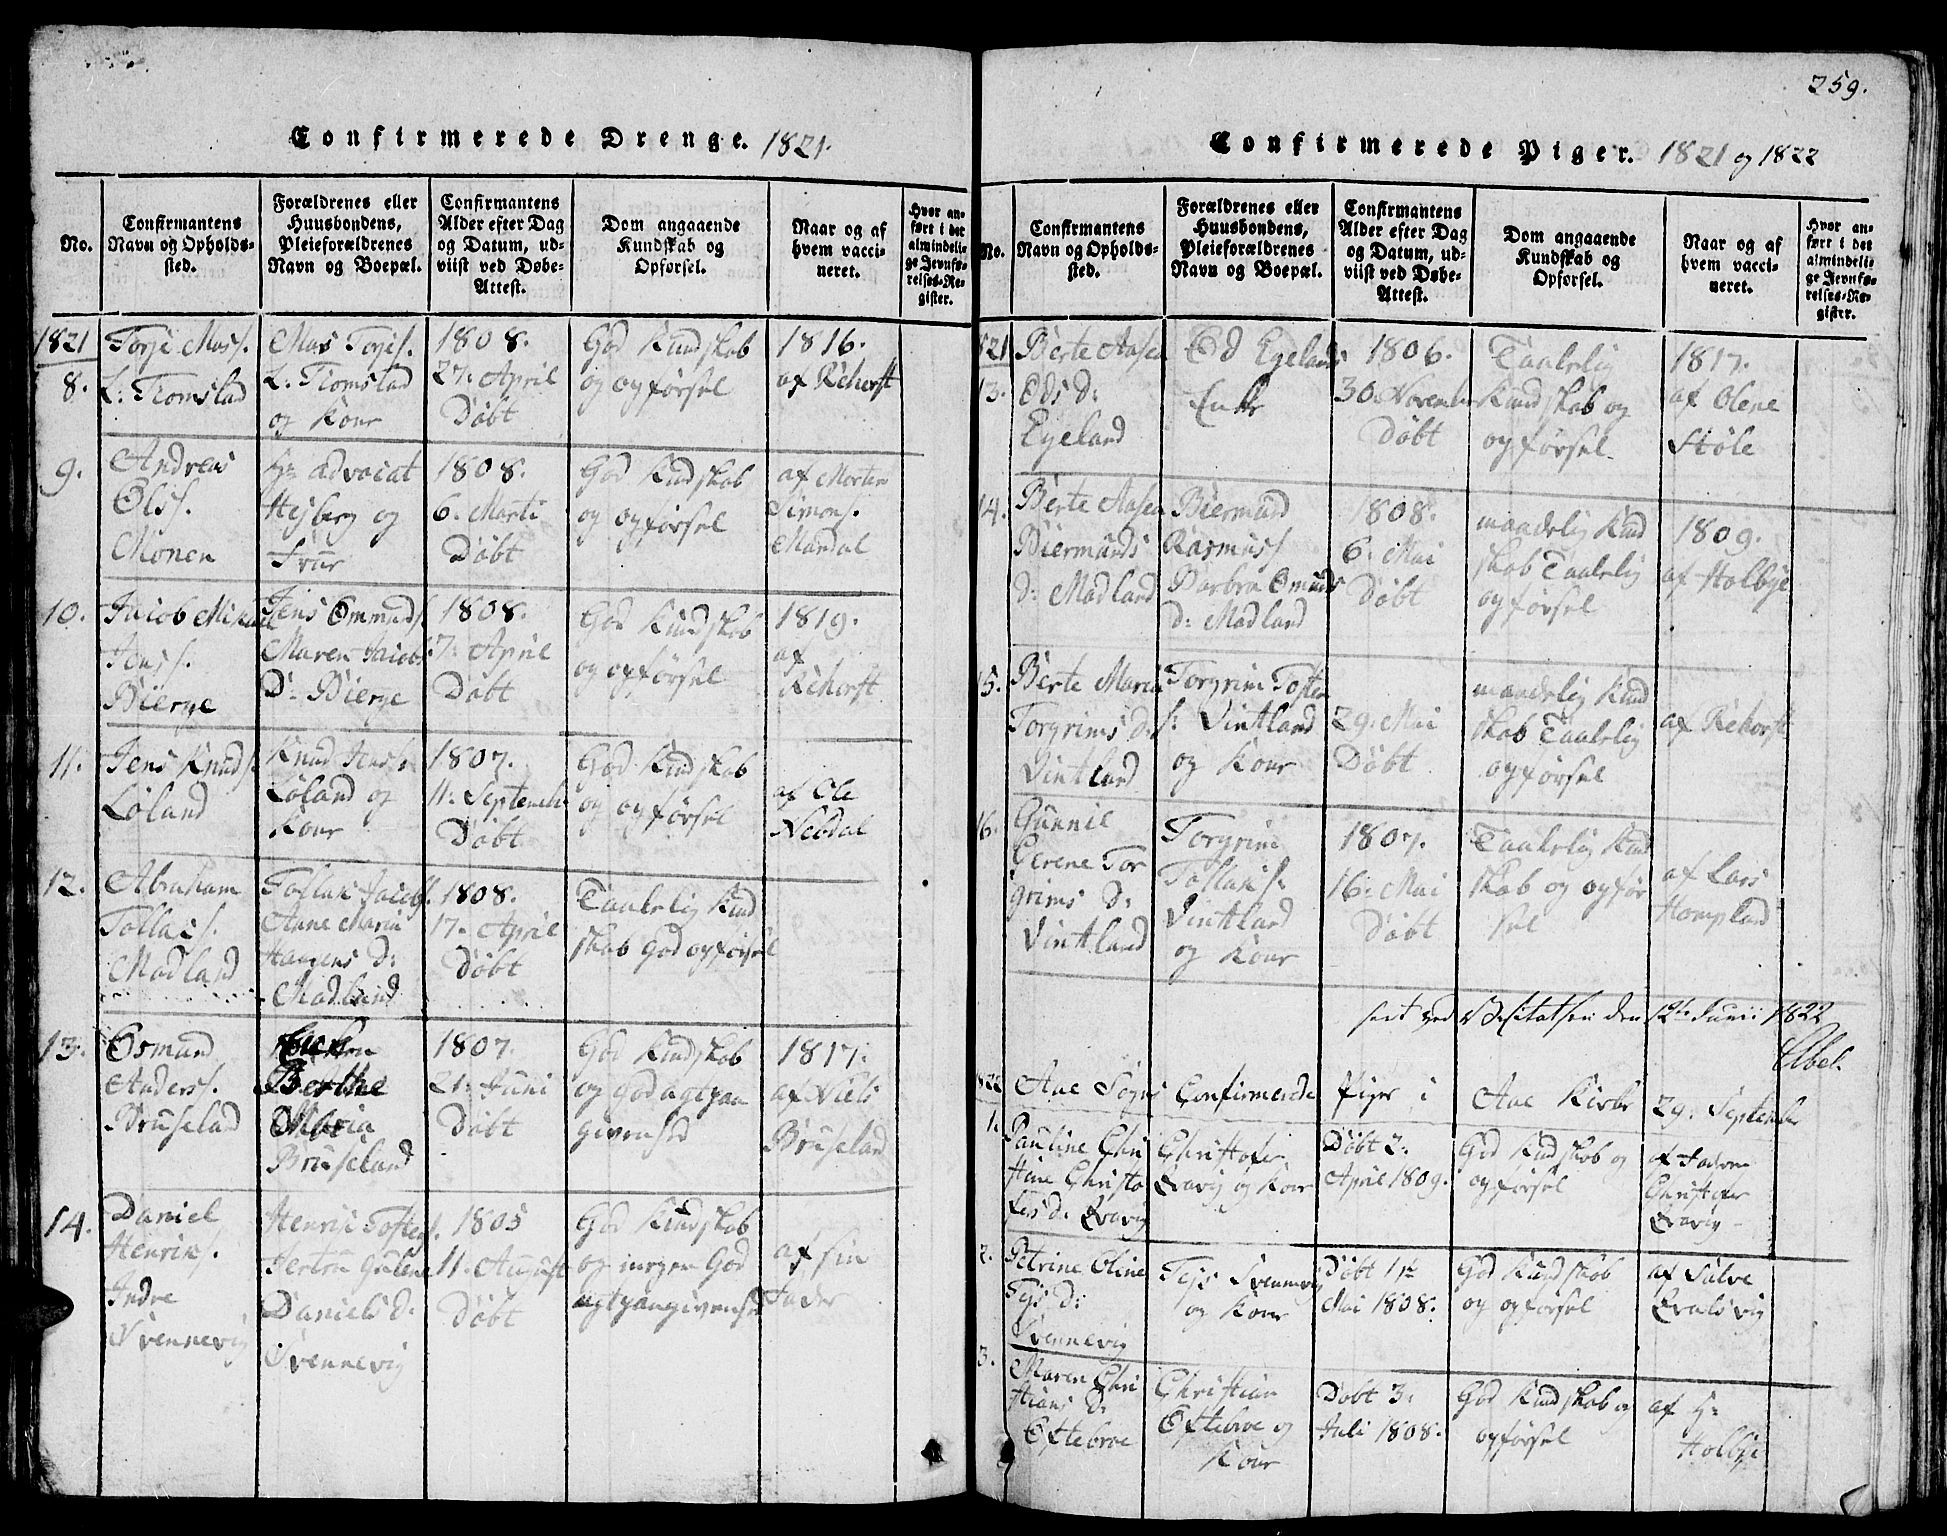 259.
Confirmerede Drenge. 1821.
No.
Confirmantens
Navn og Opholds-
sted.
Forældrenes eller
Huusbondens,
Pleieforældrenes
Navn og Boepæl.
Confirmantens
Alder efter Dag
og Datum, ud-
viist ved Døbe-
Attest.
Dom angaaende
Kundskab og
Opførsel.
Naar og af
hvem vacci-
neret.
Hvor an-
ført i det
almindeli-
ge Jevnfø-
relses-Re-
gister.
1821
8.
Torje Mass.
L: Tiomstad
Mas Torjes.
L: Tiomstad
og Kone
1808.
27. April
Døbt
God Kundskab
og opførsel
1816.
af Rehorst
9.
Andreas
Ols.
Monen
Hr Advocat
Hejberg og
Frue
1808.
6. Marti
Døbt
God Kundskab
og opførsel
af Morten
Simons.
Mandal
10.
Jacob Mikael
Jenss.
Bierge
Jens Ommunds.
Maren Jacobs
D: Bierge
1808.
7: April
Døbt
God Kundskab
og opførsel
1819.
af
Rehorst
11.
Jens Knuds.
Løland
Knud Jens.
Løland og
Kone
1807.
11. Septemb
Døbt
God Kundskab
og opførsel
af Ole
Nebdal
12.
Abraham
Tollas.
Madland
Tollak Jacobs.
Anne Maria
Haagens D:
Madland
1808.
17. April
Døbt
Taalelig Kund
skab God opførsel
13.
Osmund
Anders.
Bruseland
Enken
Berthe
Maria
Bruseland
1807.
21. Juni
Døbt
God Kundskab
og god agtpaa
givenhed
1817.
af Niels
Bruseland
14.
Daniel
Henriks.
Indre
Svennevig
Henrik Tostens.
Jertru Gulene
Daniels d:
Svennevig
1805
11. August
Døbt
God Kundskab
og meget God
agtpaagivenhed
af sin
Fader
Confirmerede Piger. 1821 og 1822
No.
Confirmantens
Navn og Opholds-
sted.
Forældrenes eller
Huusbondens,
Pleieforældrenes
Navn og Boepæl.
Confirmantens
Alder efter Dag
og Datum, ud-
viist ved Døbe-
Attest.
Dom angaaende
Kundskab og
Opførsel.
Naar og af
hvem vacci-
neret.
Hvor an-
ført i det
almindeli-
ge Jevnfø-
relses-Re-
gister.
1821
13.
Berte Aasen
Eds d:
Egeland
Ed Egelands
Enke
1806.
30. Novemb
Døbt
Taalelig
Kundskab og
opførsel.
1817.
af Olene
Støle
14.
Berte Aasen
Biermunds
d: Madland
Biermund
Rasmuss
Barbra Omunds
d: Madland
1808.
6. Mai
Døbt
maadelig Kund
skab Taalelig
opførsel
1809.
af Holbye
15.
Berte Maria
Torgrims d.
Vintland
Torgrim Tosten
s. Vintland
og Kone
29. Mai
Døbt
maadelig Kund
skab Taalelig
opførsel
af Rehorst
16.
Gunnil
Serene Tor
grims D:
Vintland
Torgrim
Tollaks.
Vintland
og Kone
1807.
16. Mai
Døbt
Taalelig Kund
skab og opfør
sel
af Lars
Hompland
seet ved Visitatsen den 12te Junii 1822
Abel.
1822
Aae Sogns Confirmerede Piger i Aae Kirke 29. Septembr
1.
Pauline Chri
stine Christo
fers d. Eravig
Christofer
Eravig og Kone
Døbt 2.
April 1809.
God Kundskab og
opførsel
af Faderen
Christofer
Eravig
2.
Petrine Oline
Tejs d:
Svennevig
Tejs Svennevig
og Kone
Døbt 1ste
Mai 1808.
God Kundskab
og opførsel
af Sulve
Eralsvig
3.
Maren Chri
stians D.
Øftebroe
Christian
Øftebroe og
Kone
Døbt 3.
Juli 1808.
God Kundskab og
opførsel
af Hr
Holbye